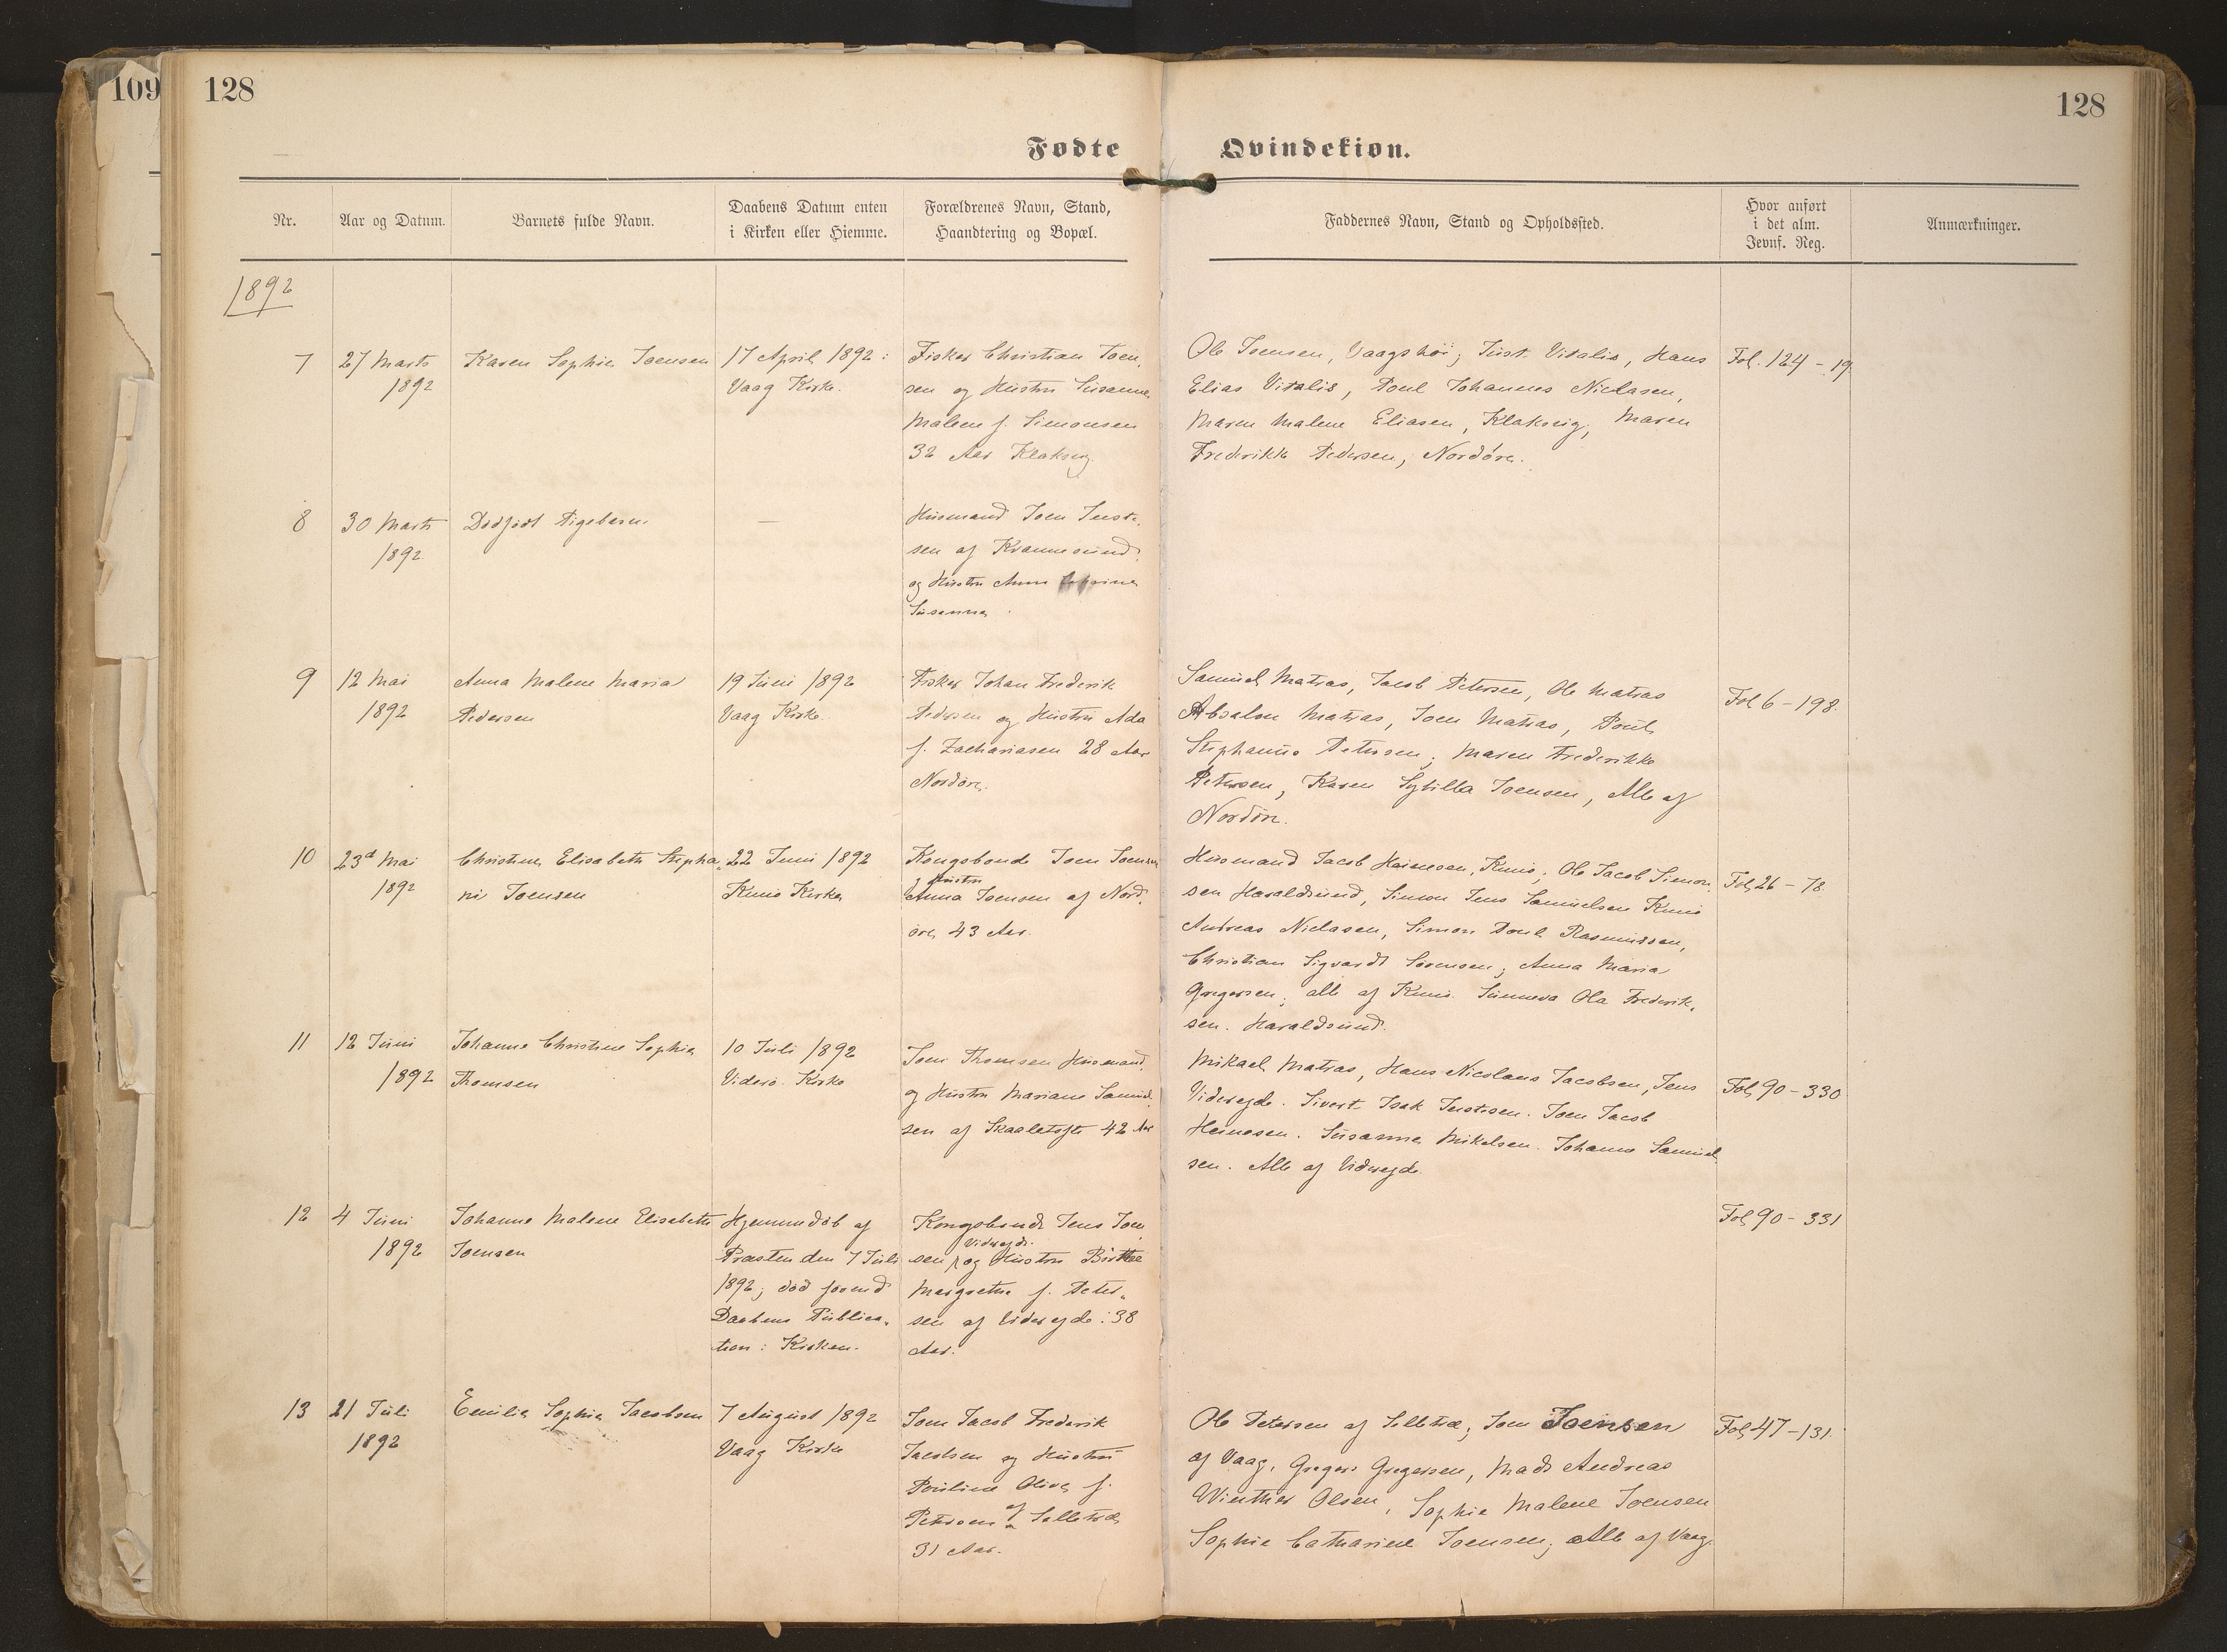 109
128
128
Fødte
Qvindekiøn.
Nr.
Aar og Datum.
Barnets fulde Navn.
Daabens Datum enten
i Kirken eller Hiemme.
Forældrenes Navn, Stand,
Haandtering og Bopæl.
Faddernes Navn, Stand og Opholdssted.
Hvor anført
i det alm.
Jevnf. Reg.
Anmærkninger.
1892
7
27 Marts
1892
Karen Sophie Joensen
17 April 1892:
Vaag Kirke.
Fisker Christian Joen,
sen og Hustru Susanne
Malene f. Simonsen
32 Aar Klaksvig.
Ole Joensen, Vaagshøi; Just. Vitalis, Hans
Elias Vitalis, Poul Johannes Niclasen,
Maren Malene Eliasen, Klaksvig, Maren
Frederikke Pedersen, Nordøre.
Fol. 124 - 19
8
30 Marts
1892
Dødfødt Pigebarn
—
Huusmand Joen Just,
sen af Kvannesund
og Hustru Anne
Susanna
9
12 Mai
1892
Anna Malene Maria
Pedersen
19 Juni 1892
Vaag Kirke
Fisker Johan Frederik
Pedersen og Hustru Ada
f. Zachariasen 28 Aar
Nordøre.
Samuel Matras, Jacob Petersen, Ole Matras
Absalon Matras, Joen Matras, Poul
Stephanus Petersen; Maren Frederikke
Petersen, Karen Sybilla Joensen, Alle af
Nordøre.
Fol 6 - 198.
10
23d Mai
1892
Christine Elisabeth Stepha,
ni Joensen
22 Juni 1892
Kunø Kirke
Kongsbonde Joen Joensen
og Hustru
Anna Joensen af Nord,
øre, 43 Aar.
Huusmand Jacob Heinesen, Kunø; Ole Jacob Simon,
sen Haraldsund, Simon Jens Samuelsen Kunø
Andreas Niclasen, Simon Poul Rasmussen,
Christian Sigvardt Sørensen; Anna Maria
Gregersen; alle af Kunø. Sunneva Ola Frederik,
sen. Haraldsund.
Fol 26 - 78.
11
12 Juni
1892
Johanne Christine Sophie
Thomsen
10 Juli 1892
Viderø Kirke
Joen Thomsen Huusmand.
og Hustru Mariane Samuel,
sen af Skaaletofte 42 Aar
Mikael Matras, Hans Nicolaus Jacobsen, Jens
Viderejde. Sivert Isak Justesen. Joen Jacob
Heinesen. Susanne Mikelsen. Johanne Samuel
sen. Alle af Viderejde.
Fol 90 - 330
12
4 Juni
1892
Johanne Malene Elisabeth
Joensen
Hjemmedøb af
Præsten den 7 Juli
1892; død forend
Daabens Publica,
tion i Kirken.
Kongsbonde Jens Joen
Viderejde.
sen og Hustru Birthe
Margrethe f. Peter,
sen af Viderejde. 38
Aar.
Fol 90 - 331
13
21 Juli
1892
Emilie Sophie Jacobsen
7 August 1892
Vaag Kirke
Joen Jacob Frederik
Jacobsen og Hustru
Pouline Olive f.
Petersen af Selletræ
31 Aar.
Ole Petersen af Selletræ; Joen Joensen
af Vaag, Gregers Gregersen, Mads Andreas
Winther Olsen, Sophie Malene Joensen
Sophie Catharine Joensen; Alle af Vaag.
Fol 47 - 131.